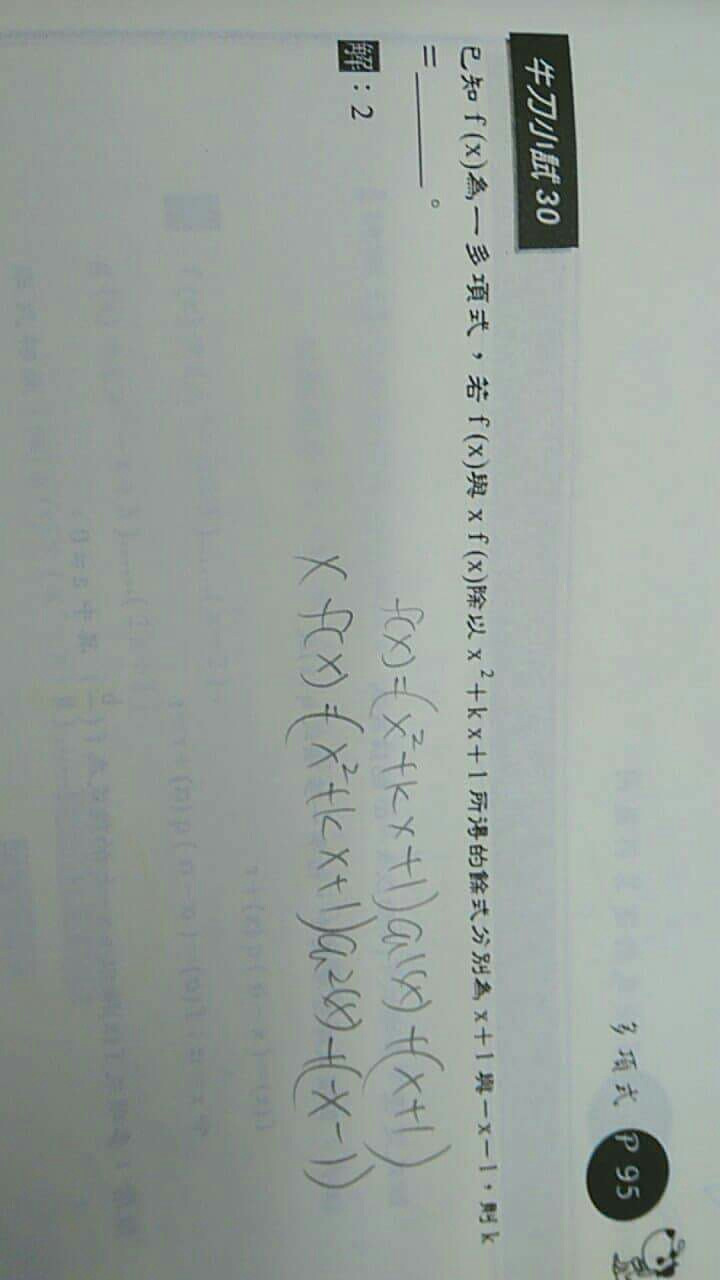 多項式 P 95
牛刀小試 30
已知 f(x)為一多項式,若 f(x)與 x f(x)除以 x²+kx+1 所得的餘式分別為 x+1 與-x-1,則 k
=______。
解:2
f(x)=(x²+kx+1)a1(x)+(x+1)
x f(x)=(x²+kx+1)a2(x)+(-x-1)